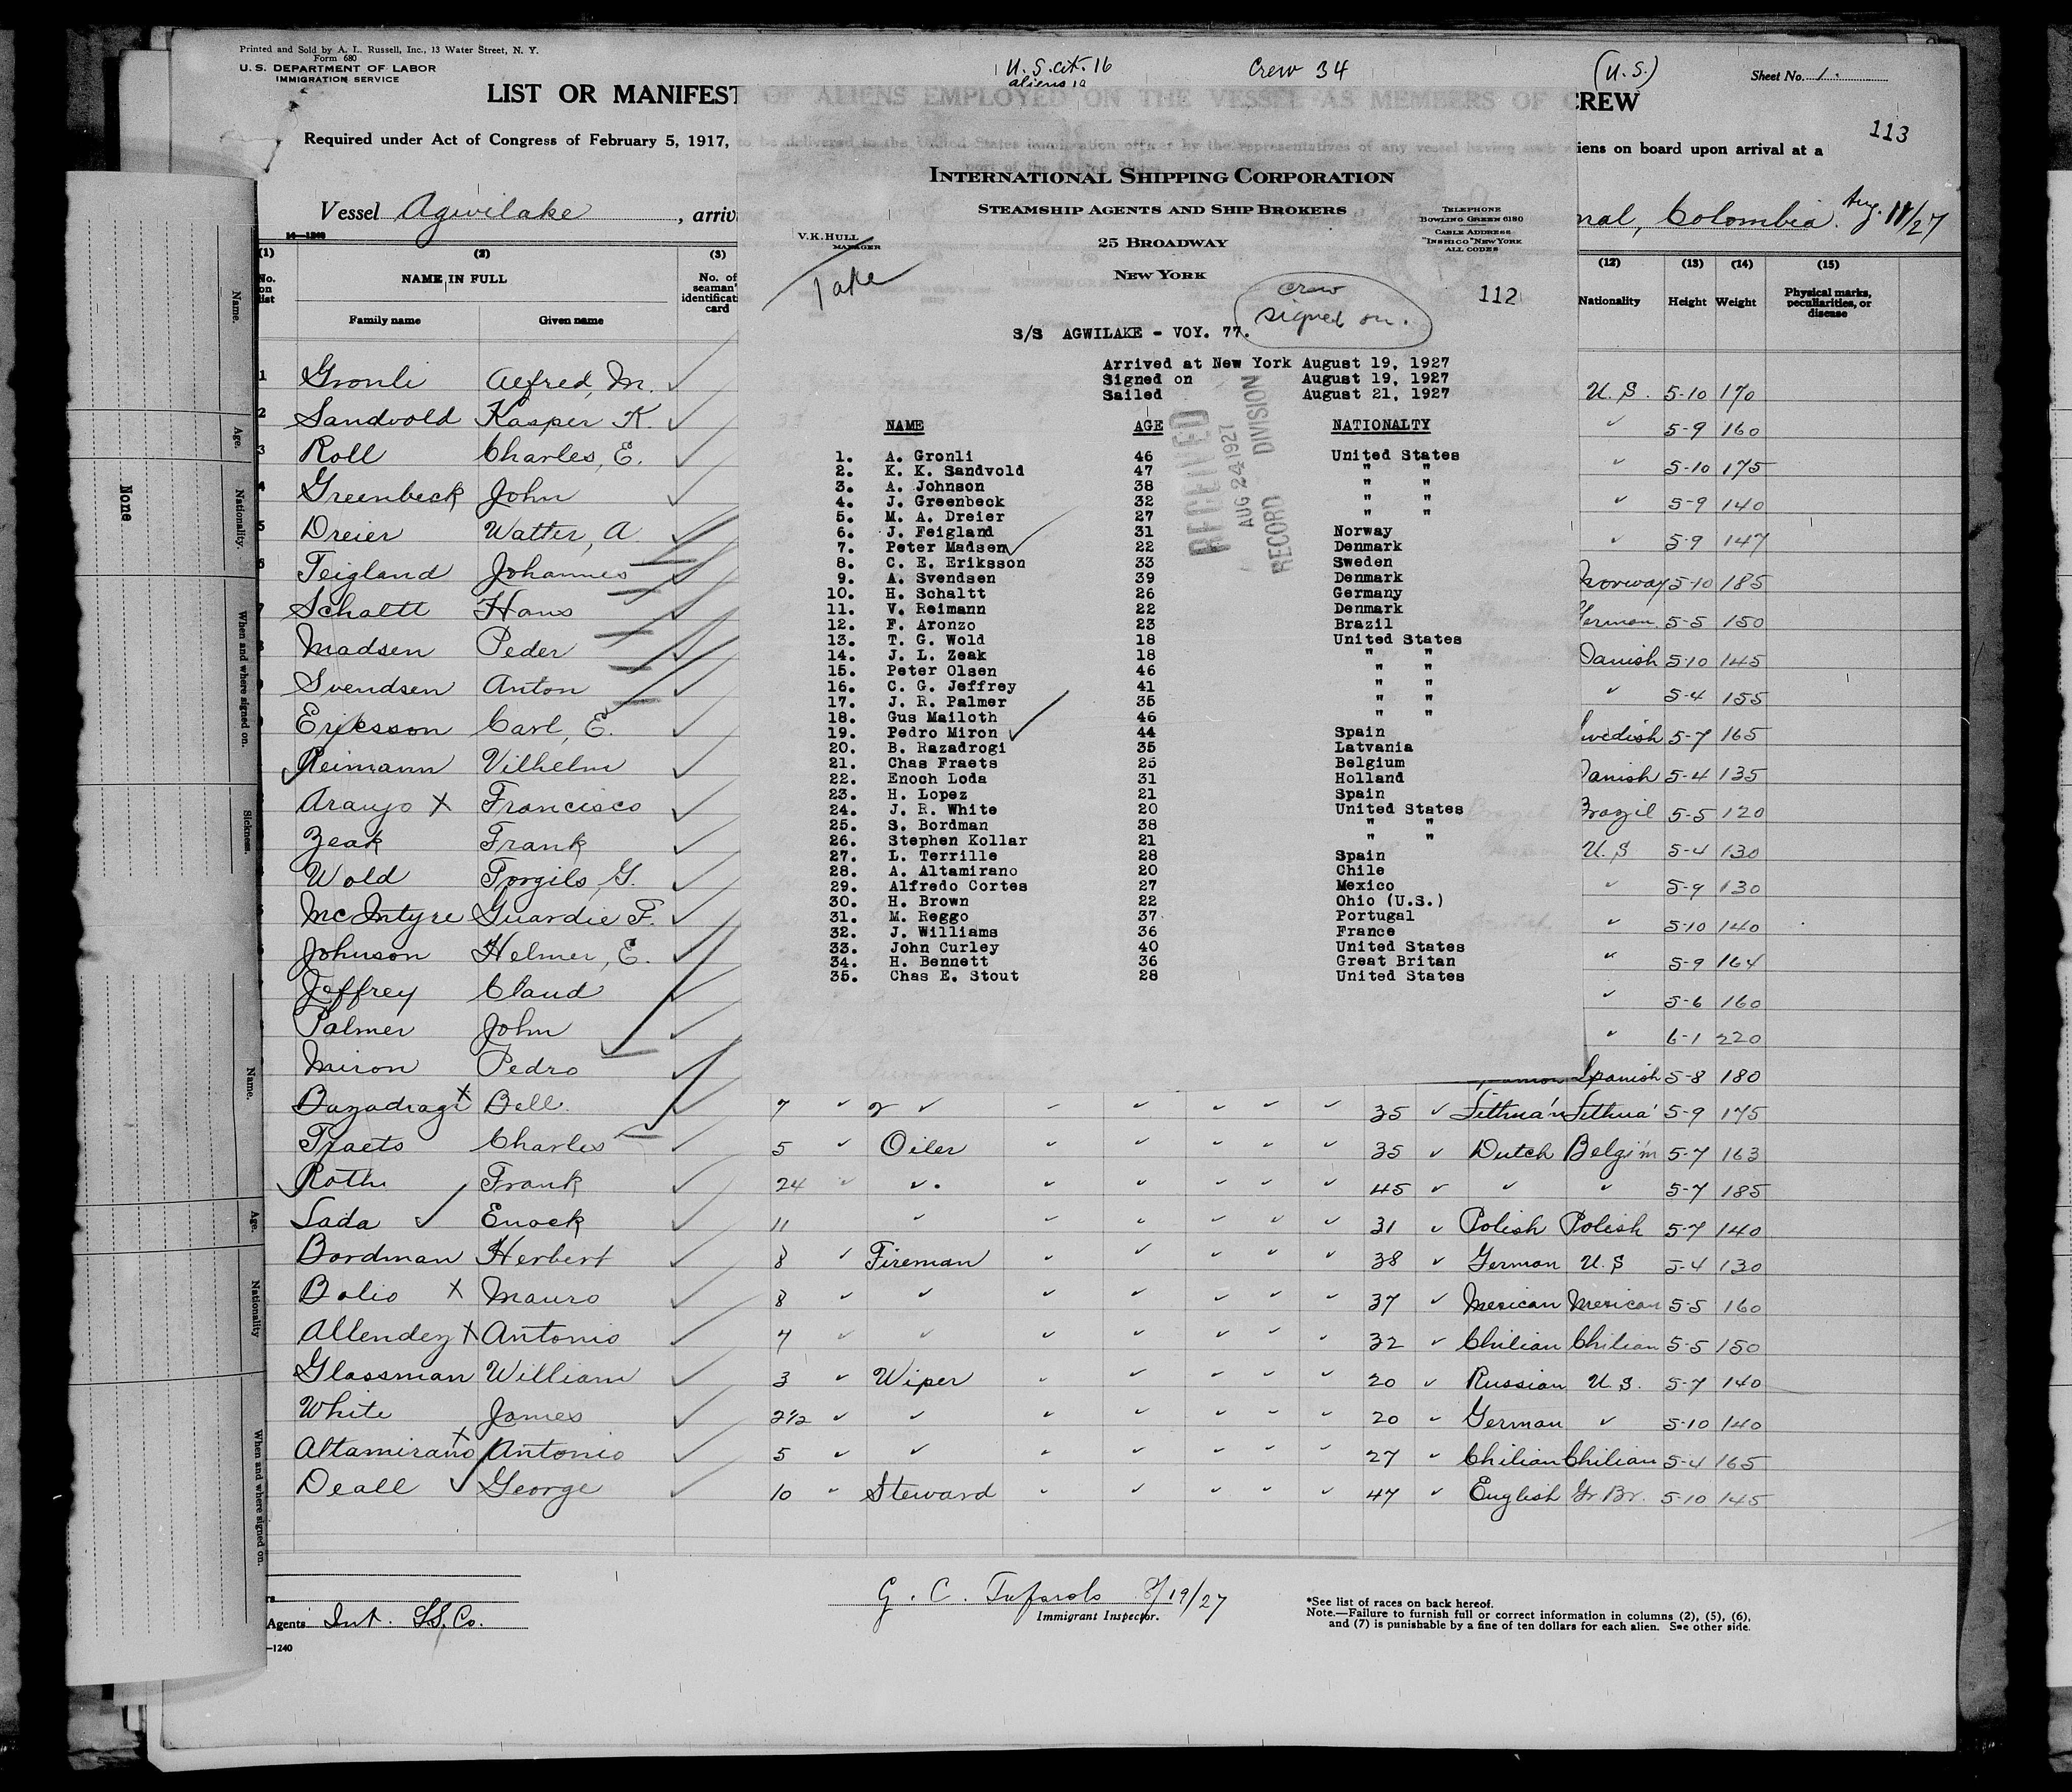 Printed and Sold by A. L. Russell, Inc., 13 Water Street, N. Y.
Form 680
U. S. DEPARTMENT OF LABOR
IMMIGRATION SERVICE
U. S. cit. 16
aliens
Crew 34
(U. S.)
Sheet No. 1.
LIST OR MANIFEST OF ALIENS EMPLOYED ON THE VESSEL AS MEMBERS OF CREW
113
Required under Act of Congress of February 5, 1917, to be delivered to the United States immigration officer by the representatives of any vessel having such aliens on board upon arrival at a
port of the United States
Vessel Agwilake, arriv
nal, Colombia. Aug. 11/27
14—1240
(1) (2) (3) (12) (13) (14) (15)
No. on list
NAME IN FULL
Family name Given name
No. of seaman's identificat card
Nationality Height Weight Physical marks, peculiarities, or disease
INTERNATIONAL SHIPPING CORPORATION
STEAMSHIP AGENTS AND SHIP BROKERS
V. K. HULL
MANAGER
25 BROADWAY
NEW YORK
TELEPHONE
BOWLING GREEN 6180
CABLE ADDRESS
"INSHICO" NEW YORK
ALL CODES
Take
crew
signed on.
112
S/S AGWILAKE - VOY. 77.
Arrived at New York August 19, 1927
Signed on August 19, 1927
Sailed August 21, 1927
RECEIVED
AUG 24 1927
RECORD DIVISION
NAME AGE NATIONALTY
1. A. Gronli 46 United States
2. K. K. Sandvold 47 " "
3. A. Johnson 38 " "
4. J. Greenbeck 32 " "
5. M. A. Dreier 27 " "
6. J. Feigland 31 Norway
7. Peter Madsen 22 Denmark
8. C. E. Eriksson 33 Sweden
9. A. Svendsen 39 Denmark
10. H. Schaltt 26 Germany
11. V. Reimann 22 Denmark
12. F. Aronzo 23 Brazil
13. T. G. Wold 18 United States
14. J. L. Zeak 18 " "
15. Peter Olsen 46 " "
16. C. G. Jeffrey 41 " "
17. J. R. Palmer 35 " "
18. Gus Mailoth 46 " "
19. Pedro Miron 44 Spain
20. B. Razadrogi 35 Latvania
21. Chas Fraets 25 Belgium
22. Enoch Loda 31 Holland
23. H. Lopez 21 Spain
24. J. R. White 20 United States
25. S. Bordman 38 " "
26. Stephen Kollar 21 " "
27. L. Terrille 28 Spain
28. A. Altamirano 20 Chile
29. Alfredo Cortes 27 Mexico
30. H. Brown 22 Ohio (U.S.)
31. M. Reggo 37 Portugal
32. J. Williams 36 France
33. John Curley 40 United States
34. H. Bennett 36 Great Britan
35. Chas E. Stout 28 United States
1 Gronli Alfred, M. U. S. 5-10 170
2 Sandvold Kasper K. " 5-9 160
3 Roll Charles, E. " 5-10 175
4 Greenbeck John " 5-9 140
5 Dreier Walter, A " 5-9 147
6 Teigland Johannes Norway 5-10 185
7 Schaltt Hans German 5-5 150
Madsen Peder Danish 5-10 145
Svendsen Anton " 5-4 155
Eriksson Carl, E. Swedish 5-7 165
Reimann Vilhelm Danish 5-4 135
Araujo X Francisco Brazil 5-5 120
Zeak Frank U. S 5-4 130
Wold Torgils, G. " 5-9 130
McIntyre Guardie F. " 5-10 140
Johnson Helmer, E. " 5-9 164
Jeffrey Claud " 5-6 160
Palmer John " 6-1 220
Miron Pedro Spanish 5-8 180
Bazadragi X Bell. 7 " 2 " 35 " Lithua'n Lithua' 5-9 175
Fraets Charles 5 " Oiler 35 " Dutch Belgi'm 5-7 163
Roth Frank 24 " " 45 " " " 5-7 185
Lada Enock 11 " 31 " Polish Polish 5-7 140
Bordman Herbert 8 " Fireman 38 " German U. S 5-4 130
Bolio X Mauro 8 " " 37 " Mexican Mexican 5-5 160
Allendez X Antonio 4 " " 32 " Chilian Chilian 5-5 150
Glassman William 3 " Wiper 20 " Russian U. S. 5-7 140
White James 2½ " " 20 " German " 5-10 140
Altamirano X Antonio 5 " " 27 " Chilian Chilian 5-4 165
Deall George 10 " Steward 47 " English Gr Br. 5-10 145
Agents Int. S.S. Co.
—1240
G. C. Tufarolo 8/19/27
Immigrant Inspector.
*See list of races on back hereof.
Note.—Failure to furnish full or correct information in columns (2), (5), (6),
and (7) is punishable by a fine of ten dollars for each alien. See other side.
Name.
Age.
Nationality.
None
When and where signed on.
Sickness.
Name.
Age.
Nationality
When and where signed on.